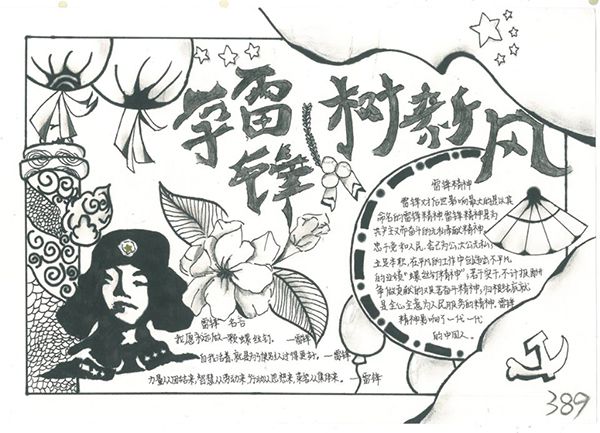 学雷锋 树新风
雷锋精神
雷锋对后世影响最大的是以其
命名的雷锋精神.雷锋精神是为
共产主义而奋斗的无私奉献精神,
忠于党和人民、舍己为公,大公无私;
立足本职、在平凡的工作中创造出不平凡
的业绩"螺丝钉精神";苦干实干、不计报酬
争做贡献的艰苦奋斗精神;归根结底就
是全心全意为人民服务的精神.雷锋
精神影响了一代一代
的中国人.
雷锋名言
我愿永远做一颗螺丝钉. —雷锋
自我活着,就是为了使别人过得更好. —雷锋
力量从团结来,智慧从劳动来,行动从思想来,荣誉从集体来. —雷锋
389